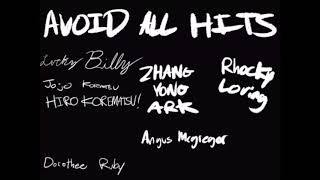 AVOID ALL HITS
Lucky Billy
Jojo Korematsu
HIRO KOREMATSU!
ZHANG
YONG
ARK
Rhocky
Loring
Angus Mcgregor
Dorothee Ruby